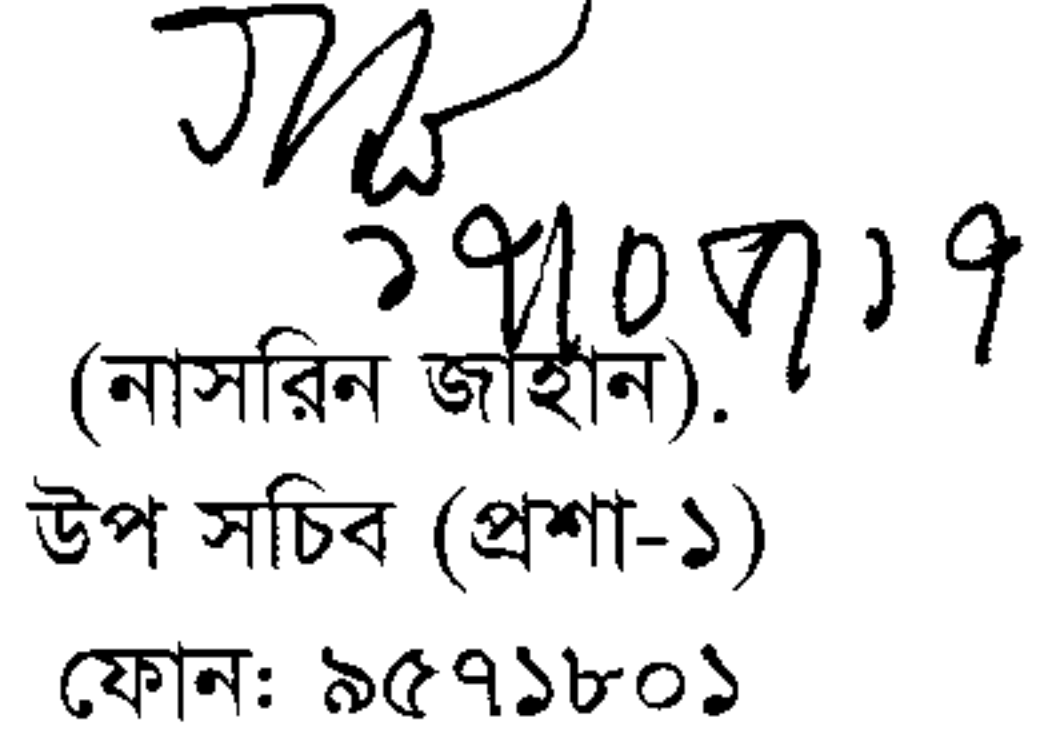 (নাসরিন জাহান).
উপ সচিব (প্রশা-১)
ফোন: ৯৫৭১৮০১